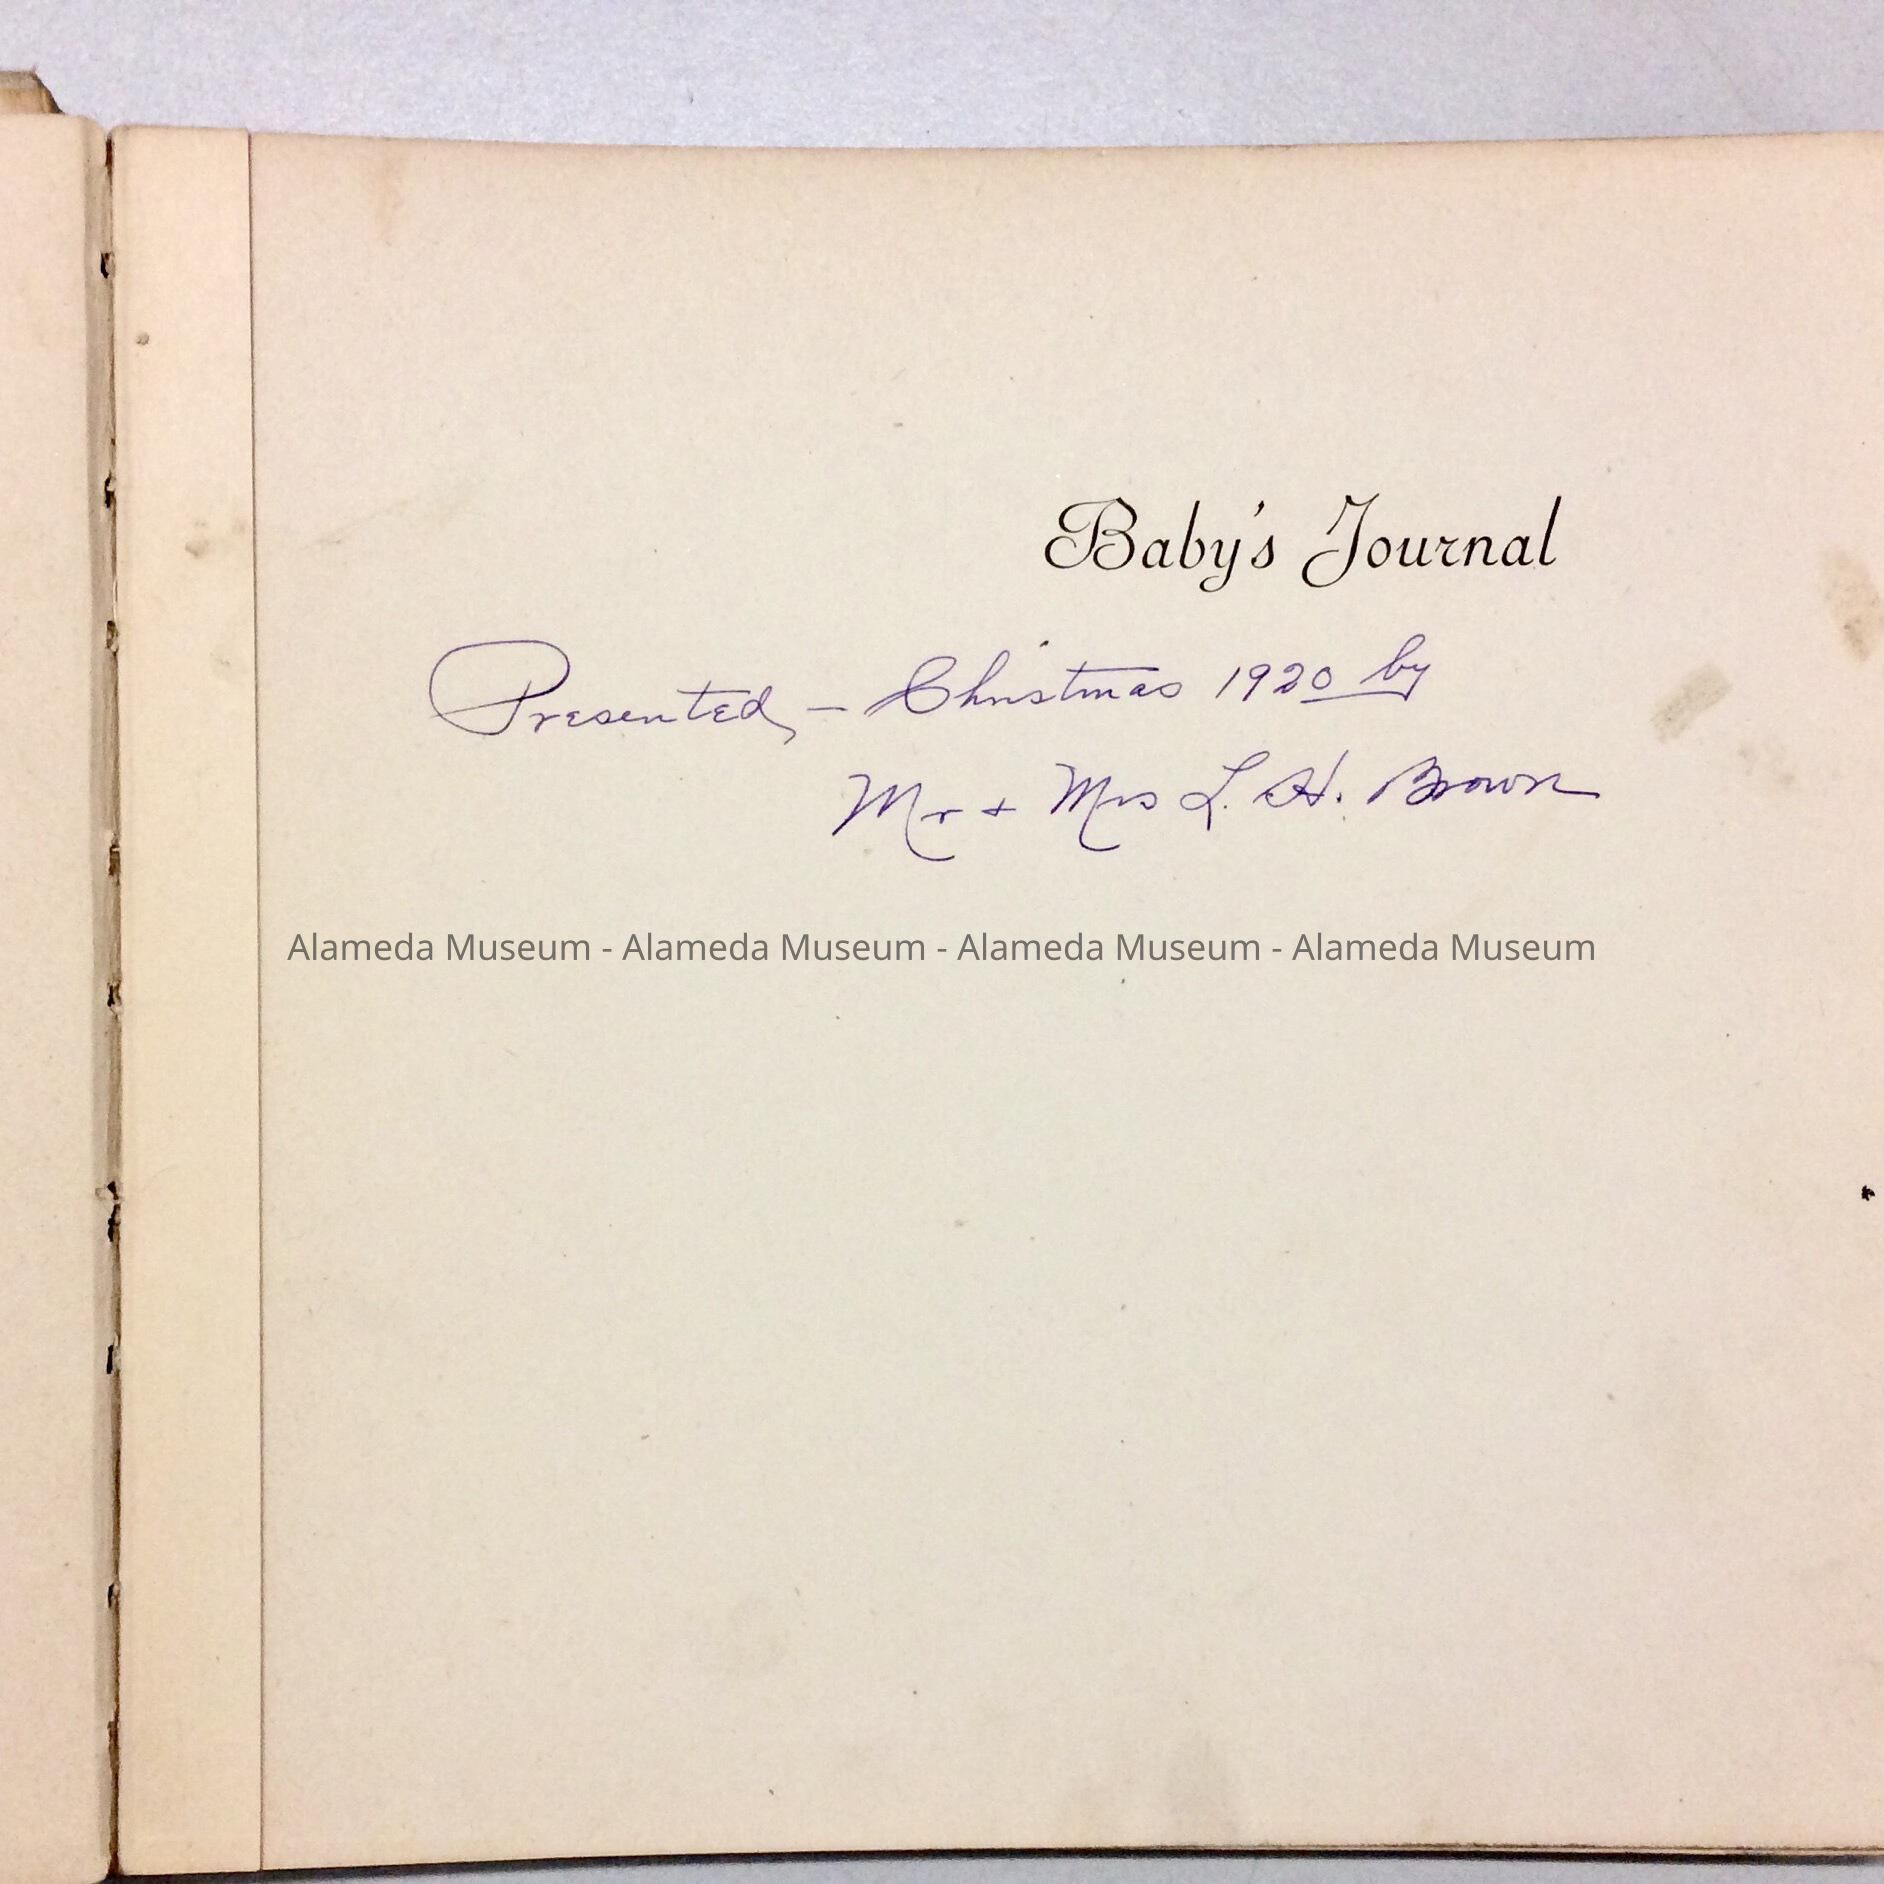 Baby's Journal
Presented – Christmas 1920 by
Mr + Mrs L. H. Brown
Alameda Museum - Alameda Museum - Alameda Museum - Alameda Museum